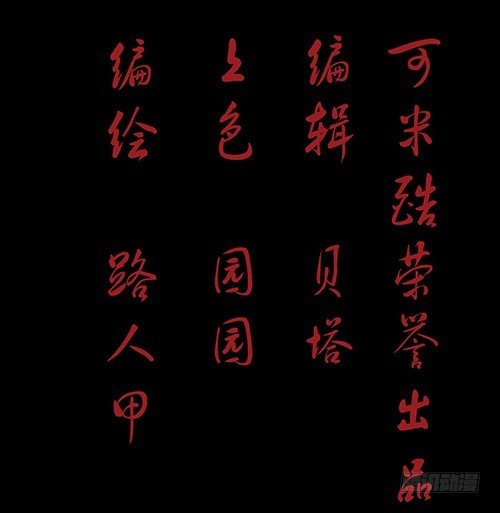 可米酷荣誉出品
编辑 贝塔
上色 园园
编绘 路人甲